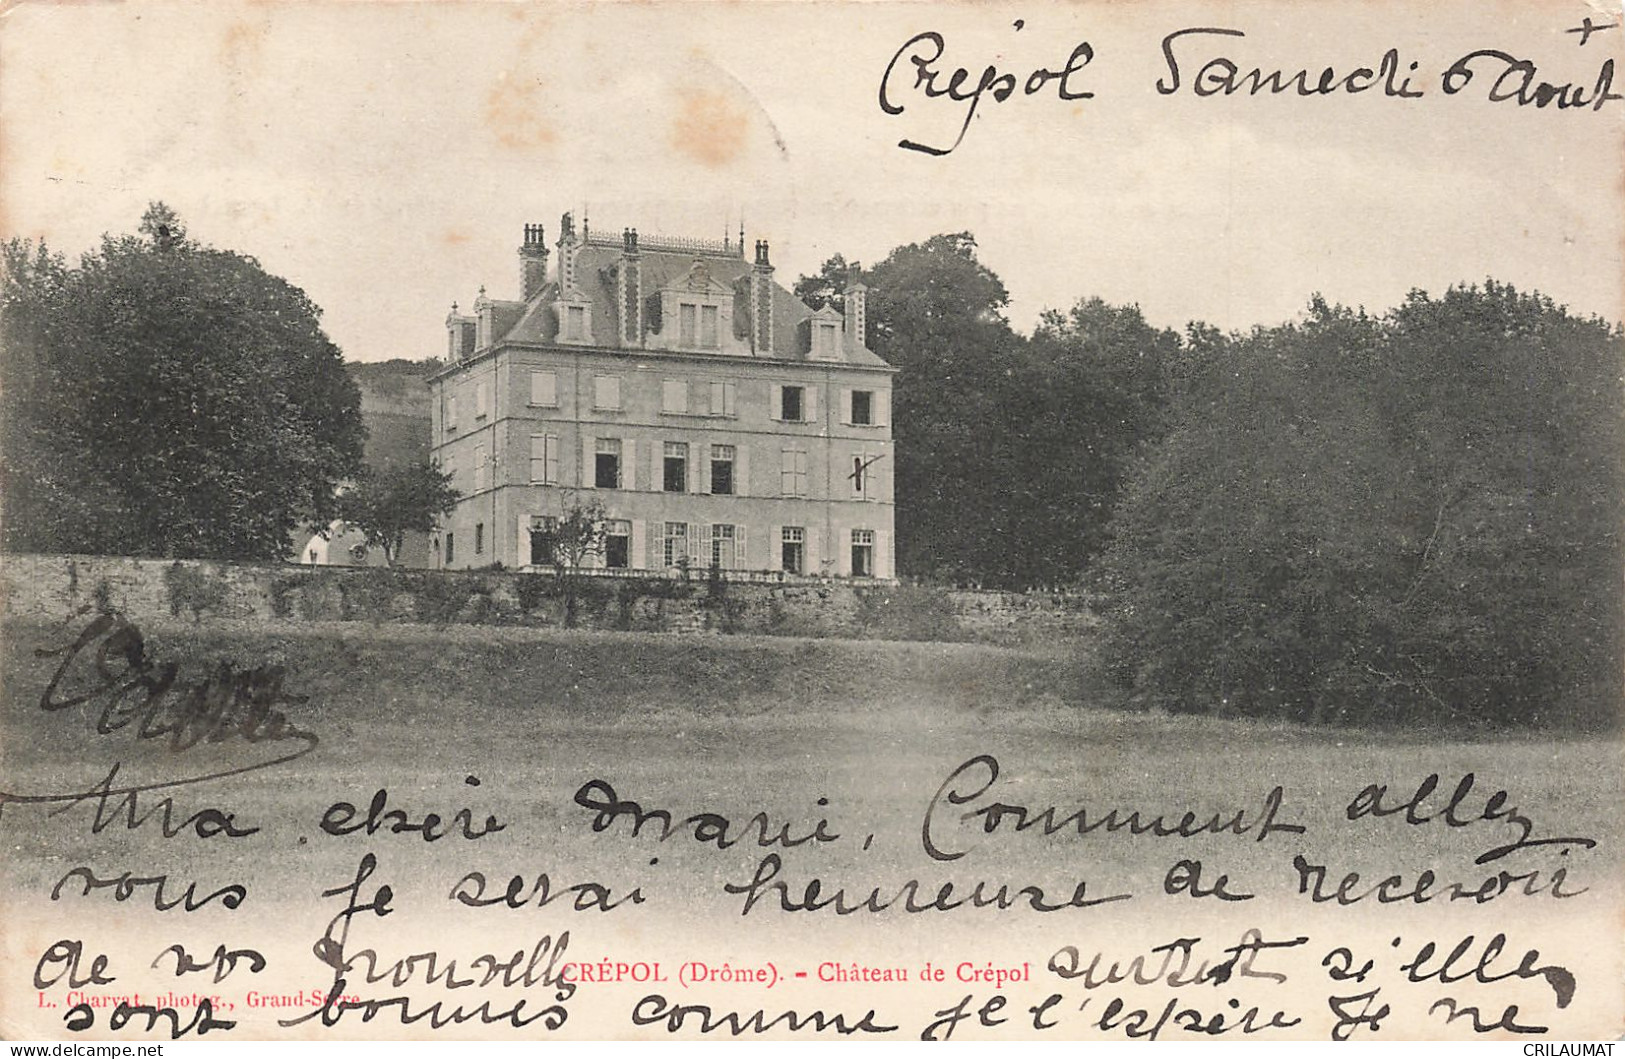 Crépol Samedi 6 Aout
Ma chère Marie, Comment allez
vous Je serai heureuse de recevoir
de vos nouvelles surtout si elles
CRÉPOL (Drôme). - Château de Crépol
L. Charvat, photog., Grand-Serre
sont bonnes comme je l'espère Je ne
CRILAUMAT